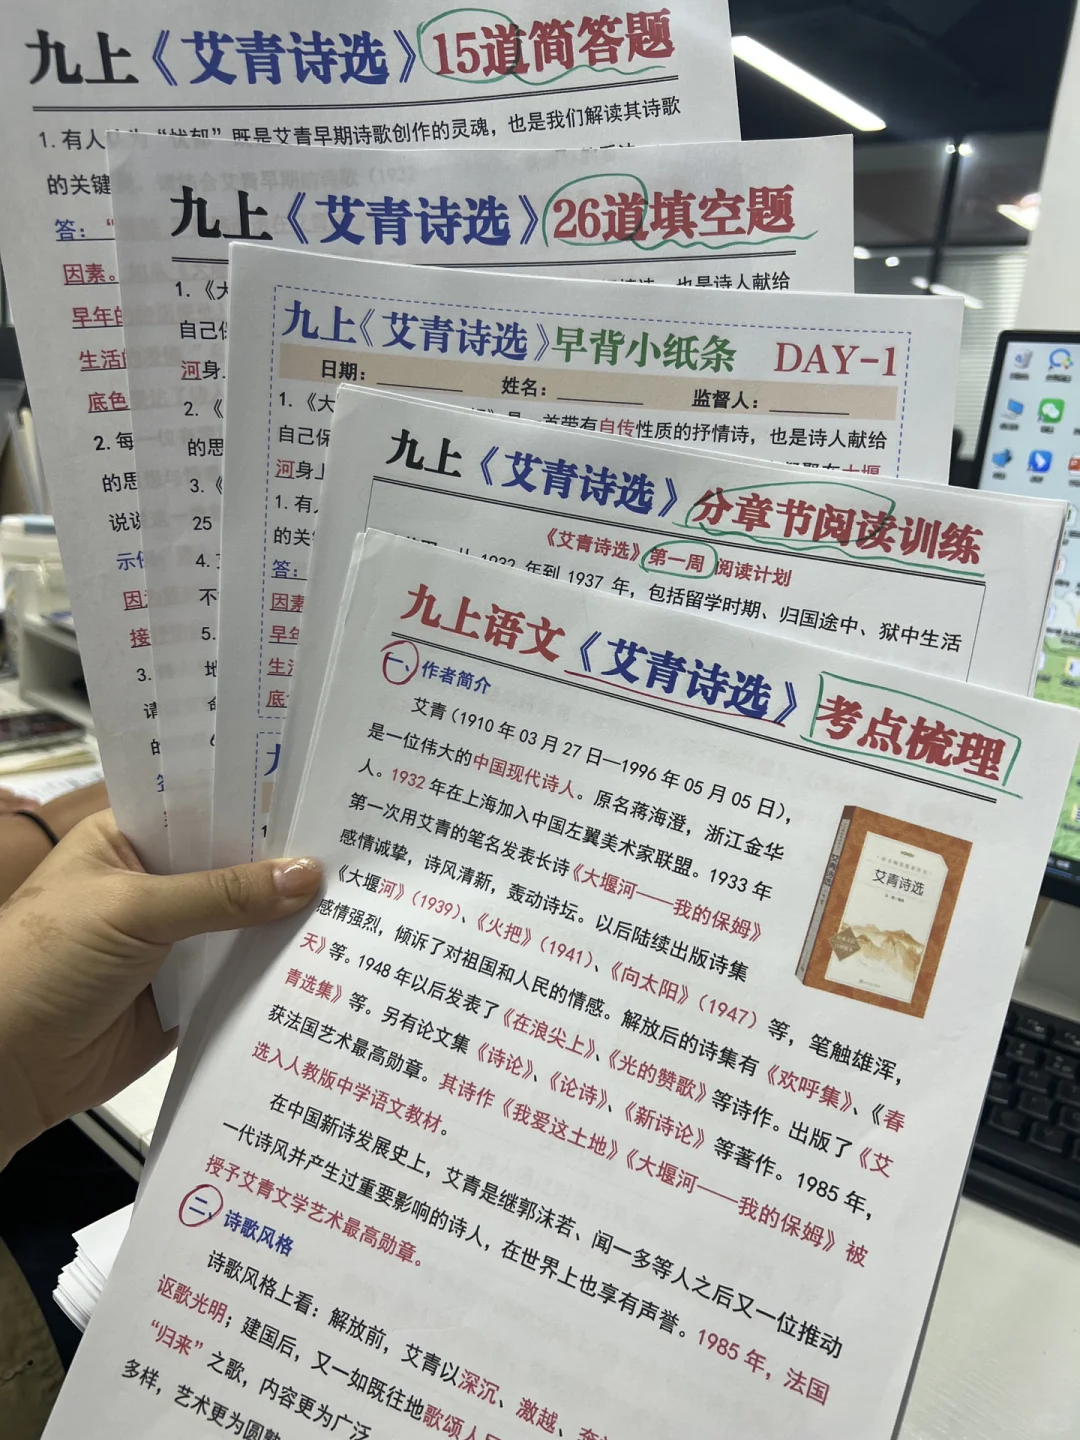 九上《艾青诗选》15道简答题
1.有人
“忧郁”既是艾青早期诗歌创作的灵魂，也是我们解读其诗歌
的关键
答：“
因素。
早年的
生活的
底色
2.每
的思
说说
示
因
接
3.
请
的
九上《艾青诗选》26道填空题
1.《大
也是诗人献给
自己保
河身
2.《
的思
3.《
25
4.
不
5.
地
6
九上《艾青诗选》早背小纸条 DAY-1
日期： 姓名： 监督人：
1.《大
首带有自传性质的抒情诗，也是诗人献给
自己保
大堰
河身上
1.有
的关
答：
因素
早年
生活
底
九上《艾青诗选》分章节阅读训练
《艾青诗选》第一周 阅读计划
从1932年到1937年，包括留学时期、归国途中、狱中生活
九上语文《艾青诗选》考点梳理
一、作者简介
艾青（1910年03月27日—1996年05月05日），
是一位伟大的中国现代诗人。原名蒋海澄，浙江金华
人。1932年在上海加入中国左翼美术家联盟。1933年
第一次用艾青的笔名发表长诗《大堰河——我的保姆》
感情诚挚，诗风清新，轰动诗坛。以后陆续出版诗集
《大堰河》（1939）、《火把》（1941）、《向太阳》（1947）等，笔触雄浑，
感情强烈，倾诉了对祖国和人民的情感。解放后的诗集有《欢呼集》、《春
天》等。1948年以后发表了《在浪尖上》、《光的赞歌》等诗作。出版了《艾
青选集》等。另有论文集《诗论》、《论诗》、《新诗论》等著作。1985年，
获法国艺术最高勋章。其诗作《我爱这土地》《大堰河——我的保姆》被
选入人教版中学语文教材。
在中国新诗发展史上，艾青是继郭沫若、闻一多等人之后又一位推动
一代诗风并产生过重要影响的诗人，在世界上也享有声誉。1985年，法国
授予艾青文学艺术最高勋章。
二、诗歌风格
诗歌风格上看：解放前，艾青以深沉、激越、奔
讴歌光明；建国后，又一如既往地歌颂人
“归来”之歌，内容更为广泛
多样，艺术更为圆熟
艾青诗选